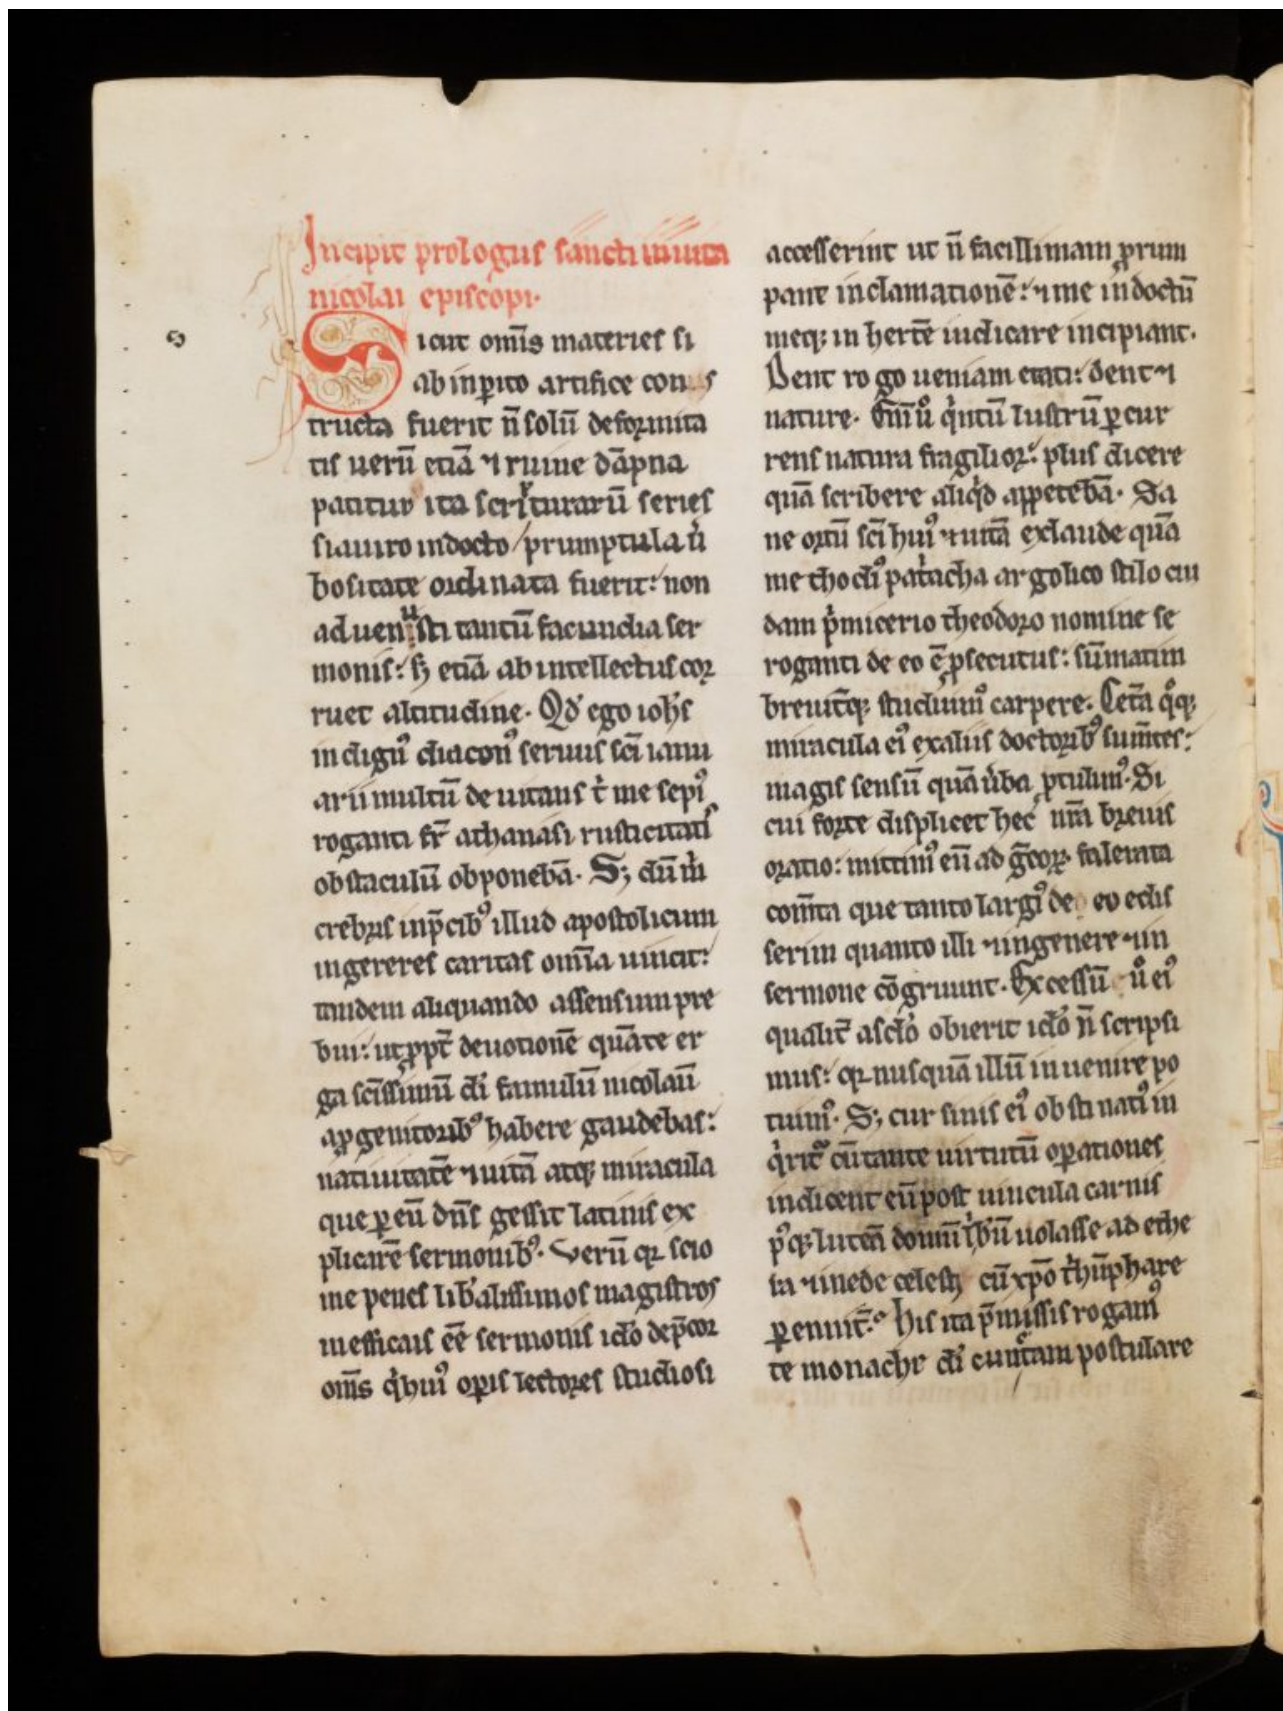 Incipit prologus sancti in uita
nicolai episcopi·
Sicut om̄is materies si
ab inꝑito artifice cons
tructa fuerit n̄ solū deformita
tis uerū etiā ⁊ ruine dāpna
patitur ita scripturarū series
si a uiro indocto / prumptula ū
bositate ordinata fuerit: non
ad uenusti tantū facundia ser
monis: sꝫ etiā ab intellectus cor
ruet altitudine· Qd̓ ego ioh̄s
indignꝰ diaconꝰ seruus sc̄i ianu
arii multū deuitans t̓ me sepiꝰ
roganti fr̄ athanasi rusticitatis
obstaculū obponebā· Sꝫ dū m̓
crebris inp̄cibꝰ illud apostolicum
ingereres caritas om̄ia uincit:
tandem aliquando assensum pre
bui: ut ꝓpt̄ deuotionē quā te er
ga sc̄issimū di̓ famulū nicolaū
a ꝓgenitoribꝰ habere gaudebas:
natiuitatē ⁊ uitā atqꝫ miracula
que ꝑ eū dn̄s gessit latinis ex
plicarē sermonibꝰ· Verū qꝛ scio
me penes lib̓alissimos magistros
inefficacis eē sermonis id̓o dep̄cor
om̄s q̓ huiꝰ opis lectores studiosi
accesserint ut n̄ facillimam ꝓrum
pant in clamationē: ⁊ me indoctū
meqꝫ inhertē iudicare incipiant·
Dent rogo ueniam etati: dent ⁊
nature· Em̄ uͦ q̓ntū lustrū ꝑcur
rens natura fragilior: plus dicere
quā scribere aliq̓d appetebā· Sa
ne ortū sc̄i huiꝰ ⁊ uitā ex laude quā
methodiꝰ pat̓acha argolico stilo cui
dam p̓micerio theodoro nomine se
roganti de eo ē ꝓsecutus: sūmatim
breuit̄qꝫ studuimꝰ carpere· Cet̄a qͦqꝫ
miracula eiꝰ ex aliis doctoribꝰ sum̄tes:
magis sensū quā ūba ꝓtulimꝰ· Si
cui forte displicet hec nr̄a breuis
oratio: mittimꝰ eū ad g̅coꝝ falerata
com̄ta que tanto largiꝰ de eo edis
serunt quanto illi ⁊ ingenere ⁊ in
sermone cōgruunt· Excessū uͦ eiꝰ
qualit̄ a sc̄lo obierit id̓o n̄ scripsi
mus: qꝛ nusquā illū inuenire po
tuimꝰ· Sꝫ cur finis eiꝰ obstinatiꝰ in
q̓rit̄ cū tante uirtutū operationes
indicent eū post uincula carnis
pꝰqꝫ luteā domū t̓bū uolasse ad ethe
ra ⁊ in ede celesti cū xp̄o t̓hūphare
ꝑennit̄· His ita p̄missis rogamꝰ
te monache di̓ cunctam postulare